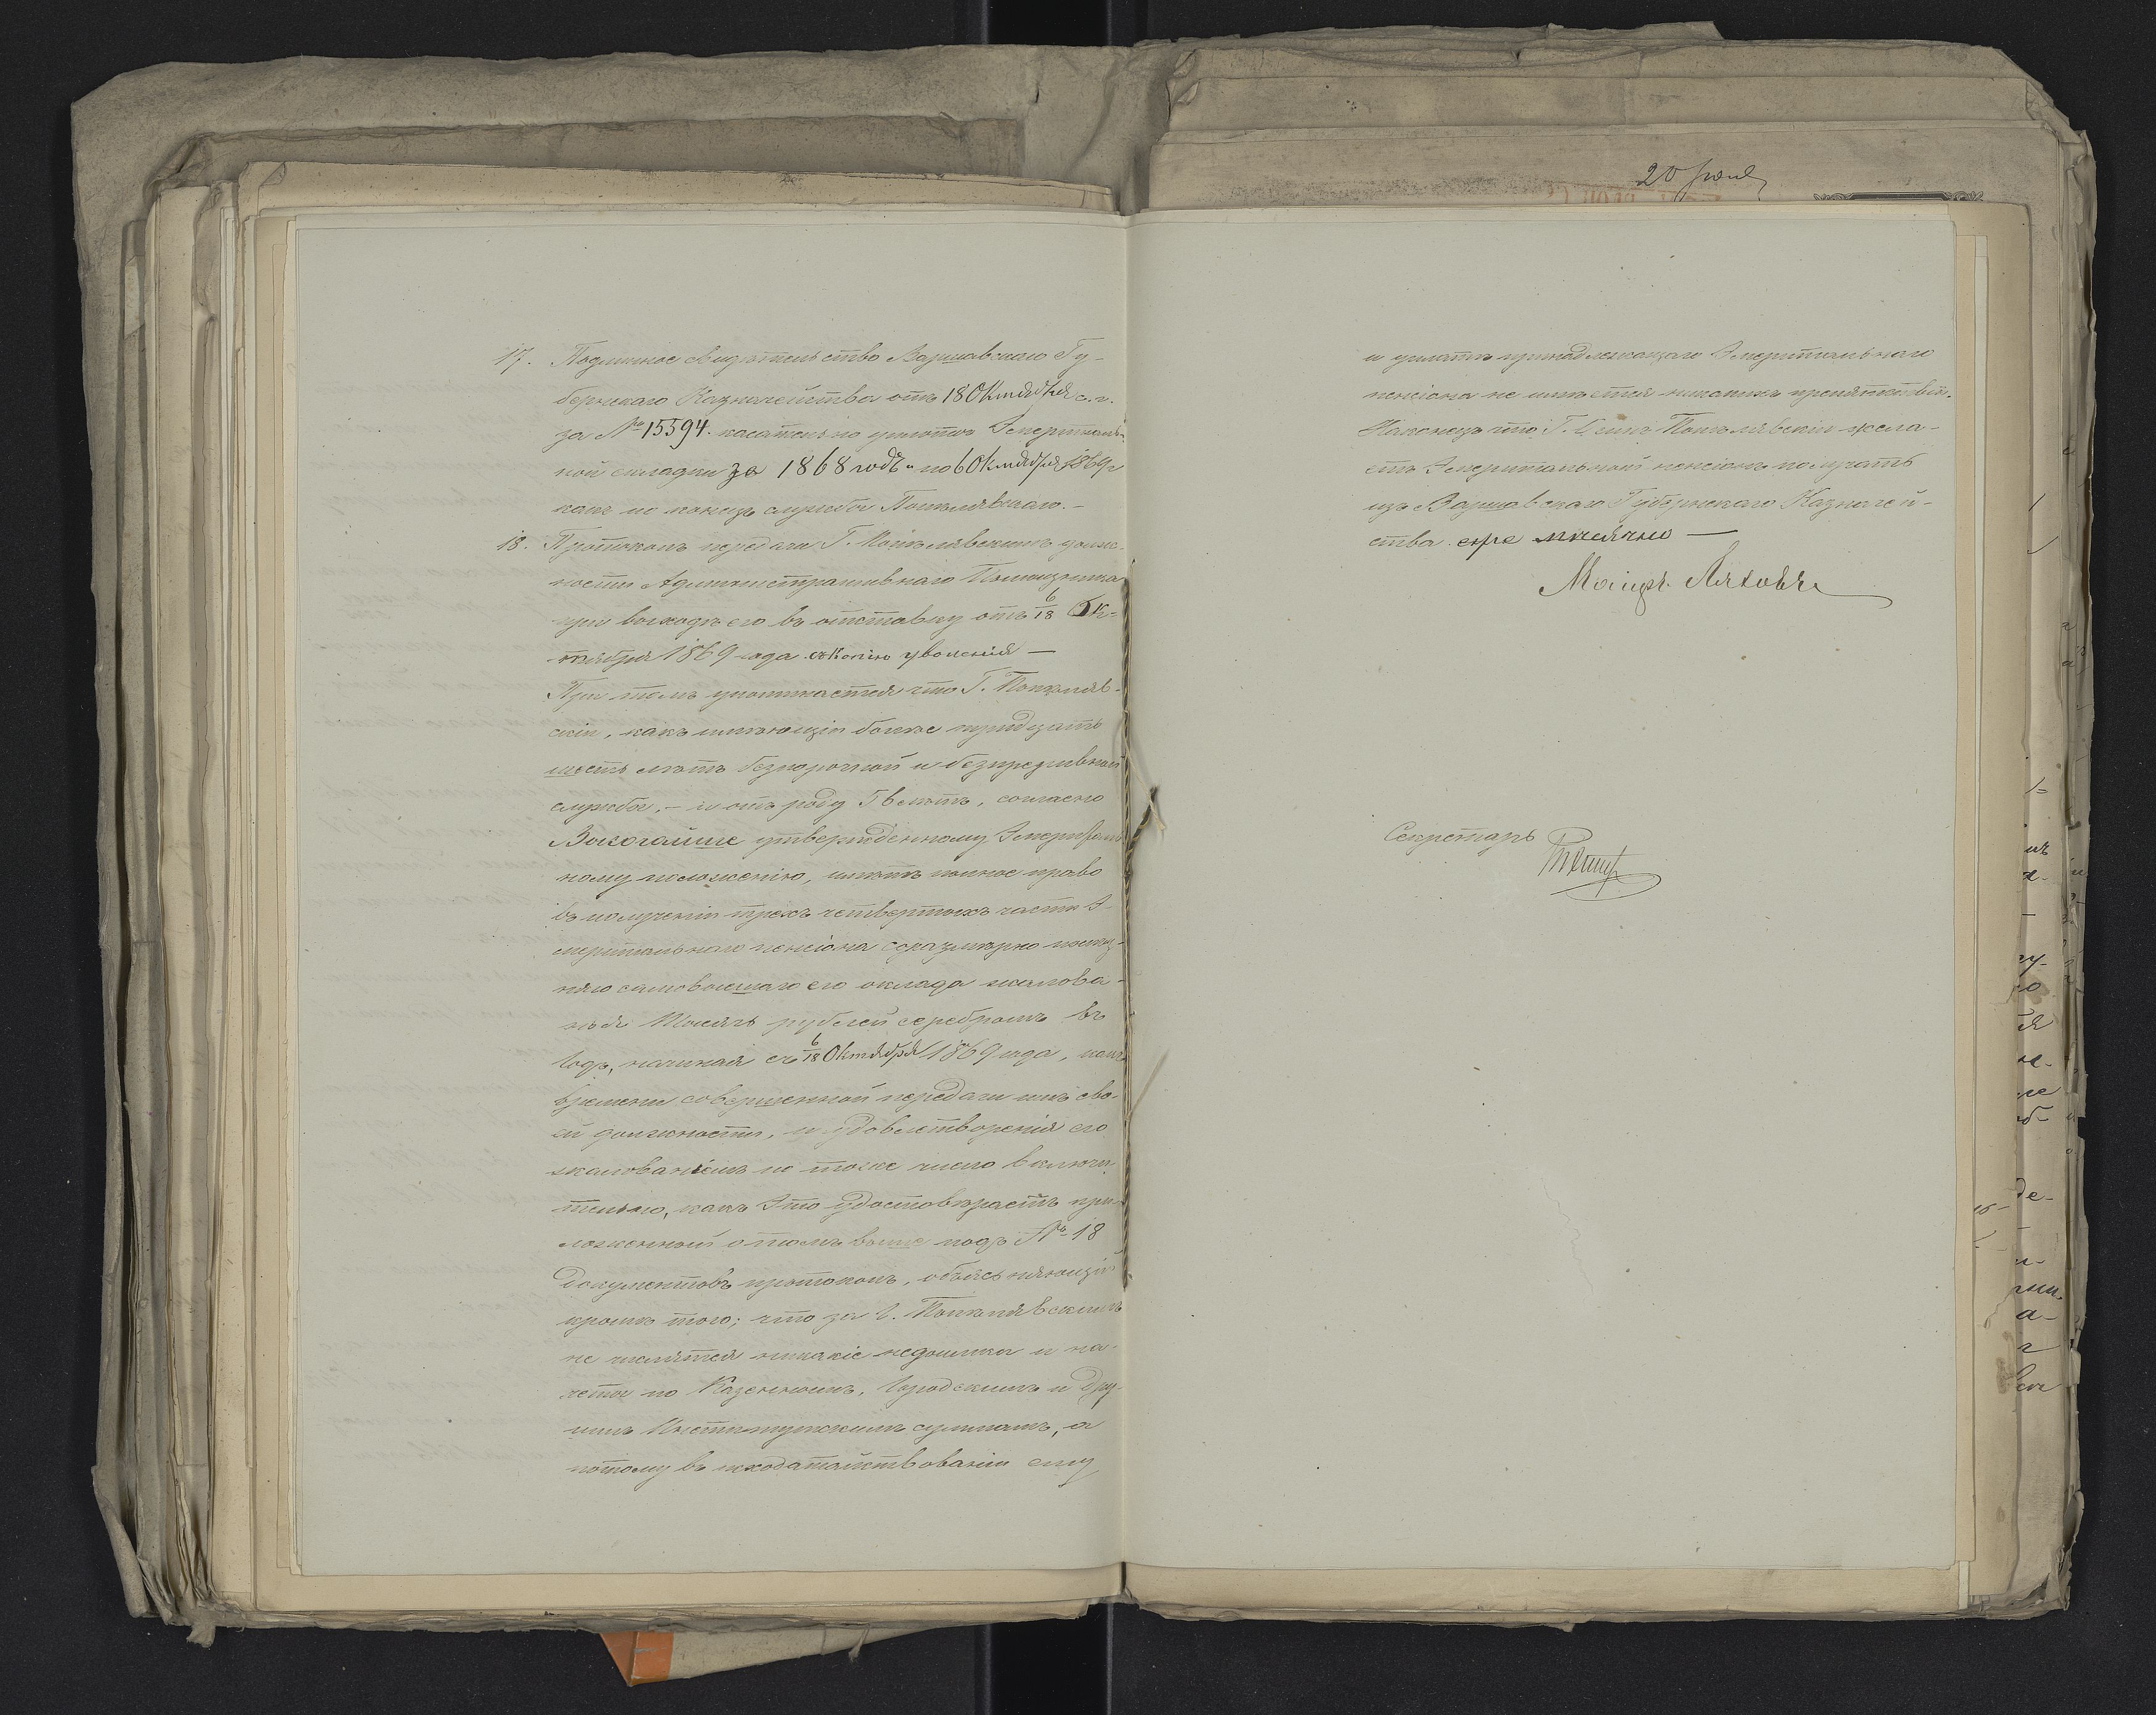 20 Іюня
17. Подлинное Свидѣтельство Варшавскаго Гу-
бернскаго Казначейства отъ 18 Октября с. г.
за № 15394. касательно уплаты Эмериталь-
ной складки за 1868 годъ и по 6 Октября 1869 г
какъ по конецъ службы
18. Протоколъ передачи Г. долж-
ности Административнаго Помощника
при выходѣ его въ отставку отъ 6/18 Ок-
тября 1869 года увольненія —
При томъ упоминается что Г.
скій, какъ имѣющій болѣе тридцать
шесть лѣтъ безпорочной и безпрерывной
службы, – и отъ роду 56 лѣтъ, согласно
Высочайше утвержденному Эмериталь-
ному положенію, имѣетъ полное право
въ полученіи трехъ четвертыхъ части Э-
меритальнаго пенсіона соразмѣрно послѣд-
няго самовысшаго его оклада жалова-
нья Тысячь рублей серебромъ въ
годъ, начиная съ 6/18 Октября 1869 года,
времени совершенной передачи имъ сво-
ей должности, и удовлетворенія его
жалованіемъ по тоже число включи-
тельно, какъ Это удостовѣряетъ при-
ложенный о томъ выше подъ № 18
Документовъ протоколъ, объясняющій
кромѣ того; что за Г.
не числятся никакіе недоимки и на-
четы по Казеннымъ, Городскимъ и Дру-
гимъ Институтскимъ суммамъ, а
потому въ исходатайствованіи ему
и уплатѣ принадлежащаго Эмеритальнаго
пенсіона не имѣется никакихъ препятствій.
Наконецъ что Г. жела-
етъ Эмеритальный пенсіонъ получать
изъ Варшавскаго Губернскаго Казначей-
ства. —
Секретарь